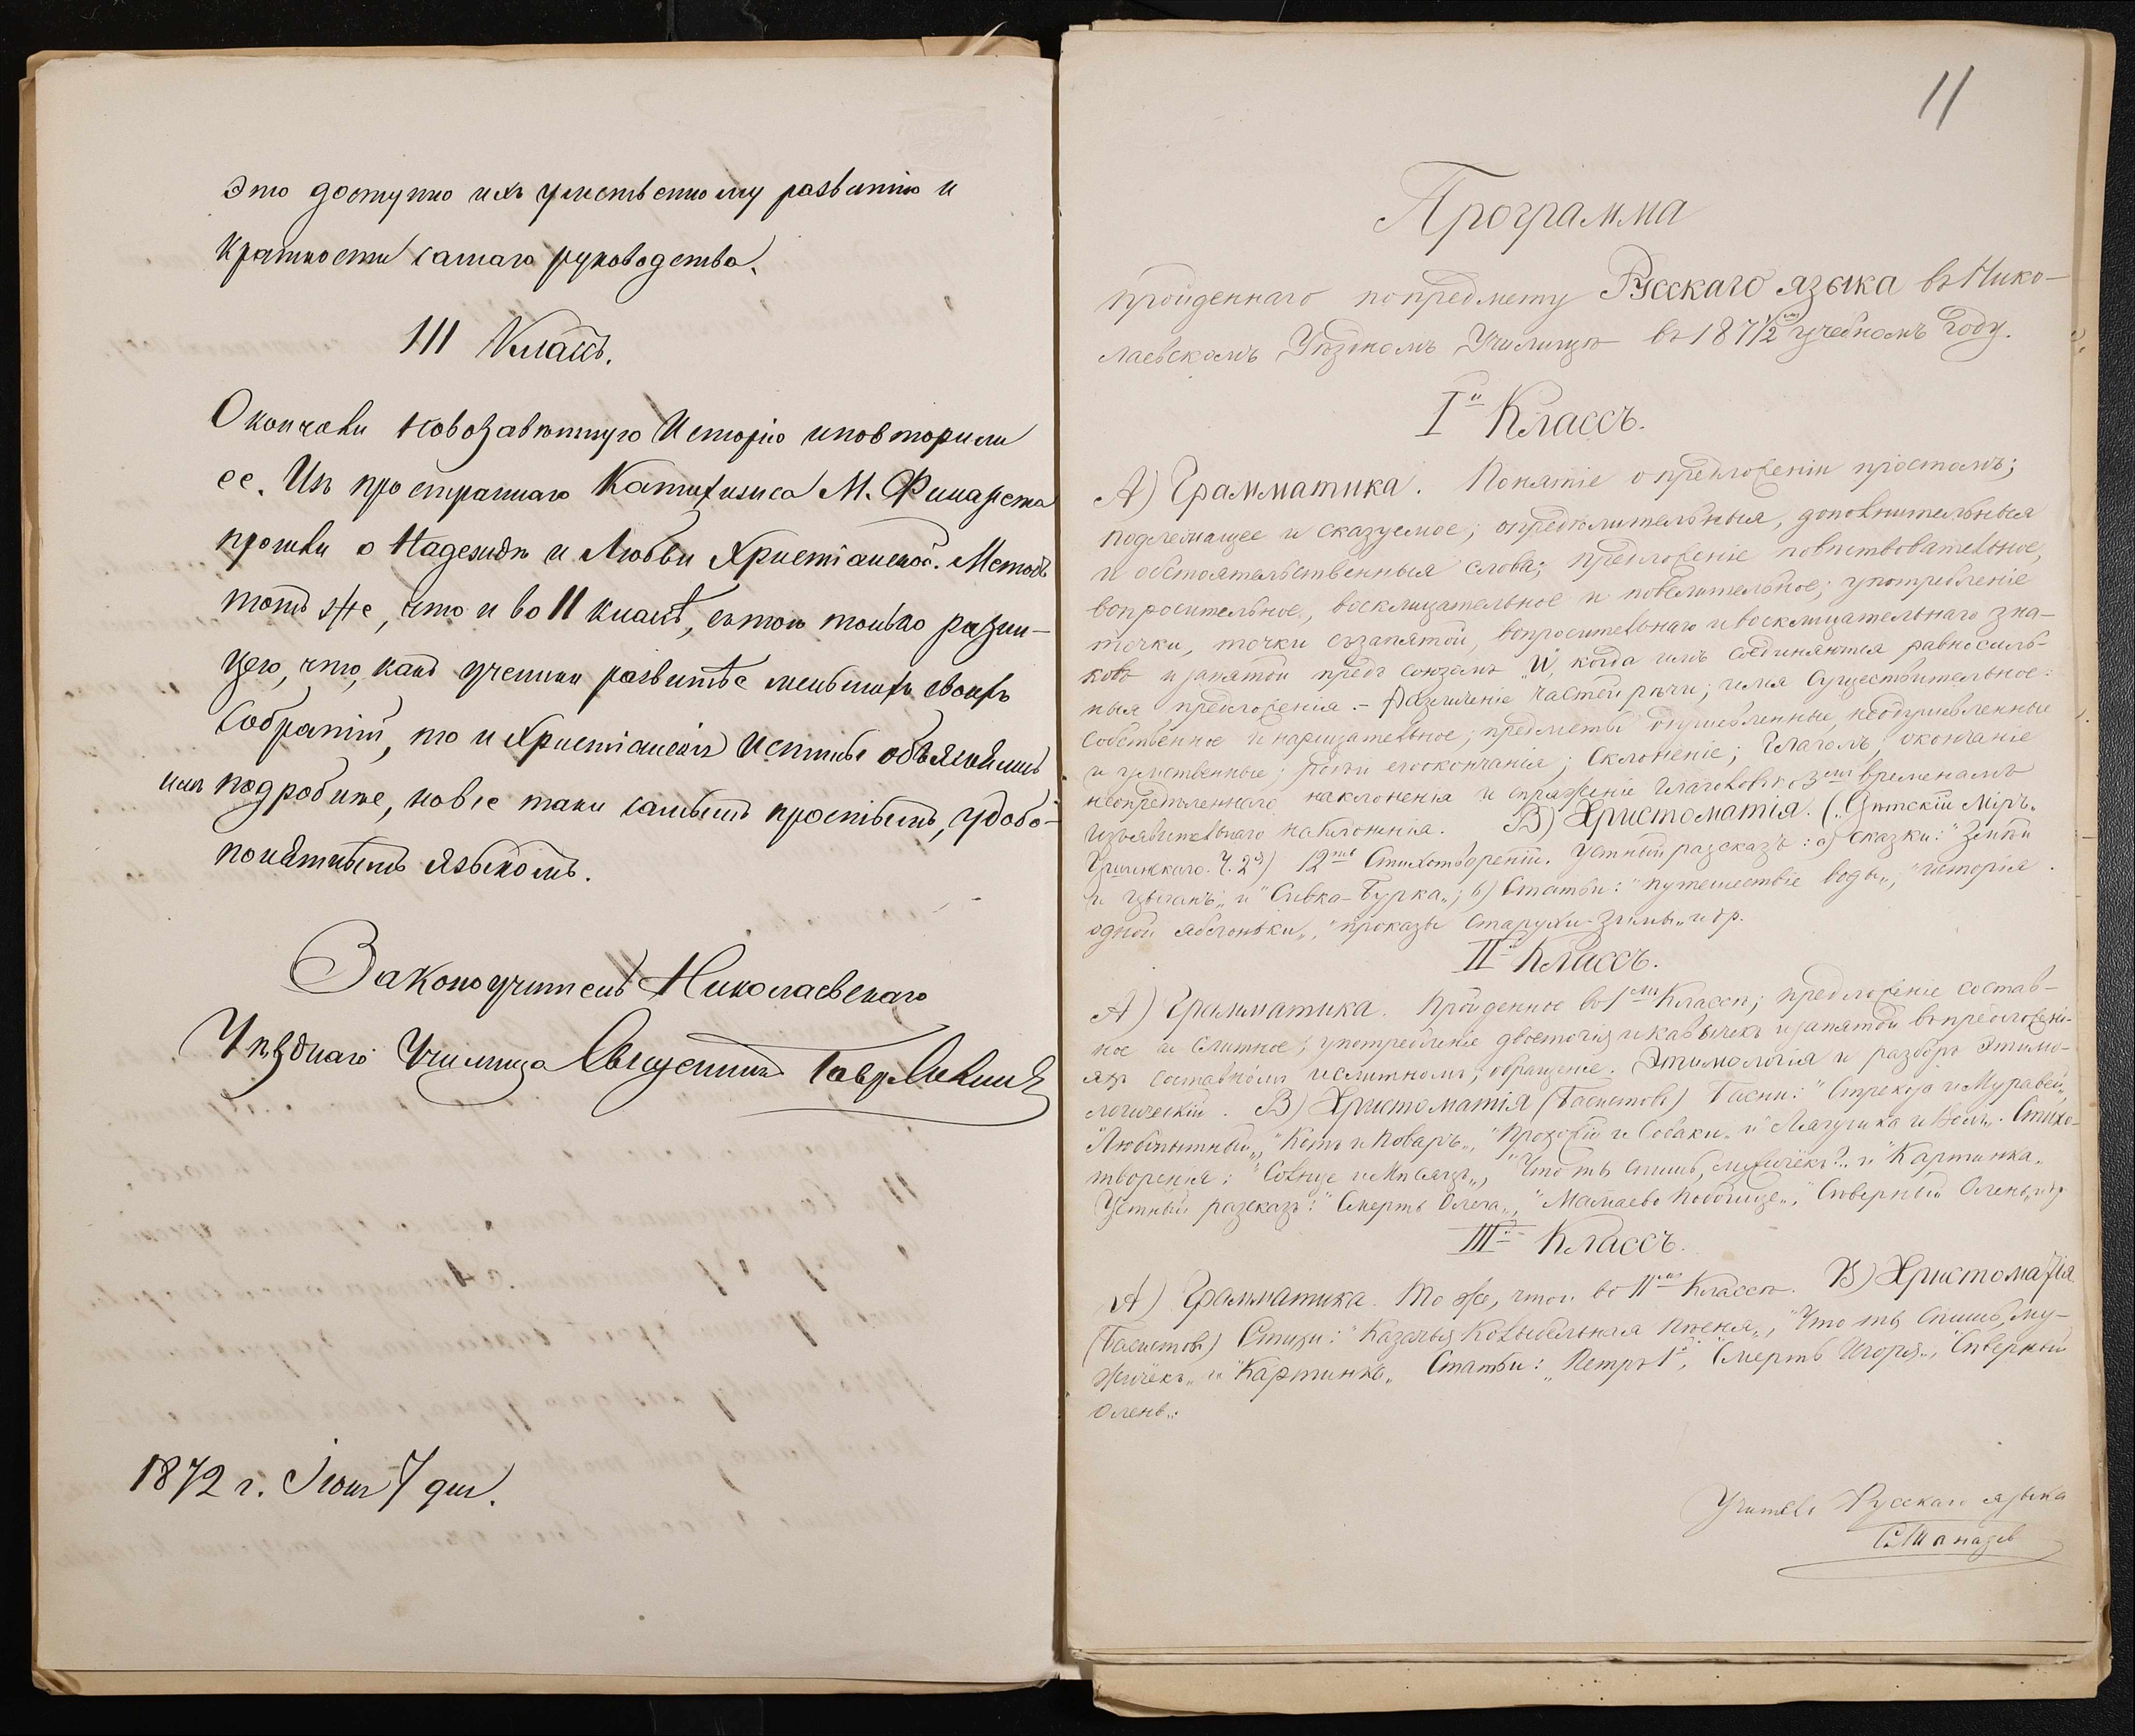 это доступно ихъ умственному развитію и
краткости самаго руководства.
III Классъ.
Окончили Новозавѣтную Исторію и повторили
ее. Изъ пространнаго Катихизиса М. Филарета
прошли о Надеждѣ и Любви Христіанской. Методъ
тотъ же, что и во II классѣ, съ тою только разни-
цею, что, какъ ученики развитѣе меньшихъ своихъ
собратій, то и Христіанскія Истины объяснялись
имъ подробнѣе, но все таки самымъ простымъ, удобо-
понятнымъ языкомъ.
Законоучитель Николаевскаго
Уѣзднаго Училища Священникъ
1872 г. Іюня 7 дня.
11
Программа
пройденнаго по предмету Русскаго языка въ Нико-
лаевскомъ Уѣздномъ Училищѣ въ 1871/2ом учебномъ году.
Iй Классъ.
А) Грамматика. Понятіе о предложеніи простомъ;
подлежащее и сказуемое; опредѣлительныя, дополнительныя
и обстоятельственныя слова; предложеніе повѣствовательное,
вопросительное, восклицательное и повелительное; употребленіе
точки, точки съ запятой, вопросительнаго и восклицательнаго зна-
ковъ и запятой предъ союзомъ "И", когда имъ соединяются равносиль-
ныя предложенія. - Различеніе частей рѣчи; имя существительное:
собственное и нарицательное; предметы одушевленные, неодушевленные
и умственные; роды его окончанія; склоненіе; глаголъ; окончаніе
неопредѣленнаго наклоненія и спряженіе глаголовъ по 3мъ временамъ
изъявительнаго наклоненія. В) Христоматія. ("Дѣтскій Міръ"
Ушинскаго. Ч. 2я) 12ть Стихотвореній. Устный разсказъ: а) сказки: "Зимній
и цыганъ" и "Сивка-Бурка"; b) Статьи: "путешествіе воды", "исторія
одной яблоньки", "проказы Старухи-Зимы" и др.
II Классъ.
А) Грамматика. Пройденное въ Iмъ Классѣ; предложеніе состав-
ное и слитное; употребленіе двоеточія и кавычекъ и запятой въ предложені-
яхъ составномъ и слитномъ; обращеніе. Этимологія и разборъ этимо-
логическій. В) Христоматія (Басистовъ) Басни: "Стрекоза и Муравей",
"Любопытный", "Котъ и Поваръ", "Прохожій и Собаки" и "Лягушка и Волъ". Стихо-
творенія: "Солнце и Мѣсяцъ", "Что ты спишь, мужичёкъ?" и "Картинка"
Устный разсказъ: "Смерть Олега", "Мамаево побоище", "Сѣверный Олень" и др
III Классъ.
А) Грамматика. То же, что и во IIмъ Классѣ. В) Христоматія
(Басистовъ) Стихи: "Казачья Колыбельная пѣсня", "Что ты спишь, му-
жичёкъ" и "Картинка" Статьи: "Петръ Iй", "Смерть Игоря", "Сѣверный
Олень":
Учитель Русскаго языка